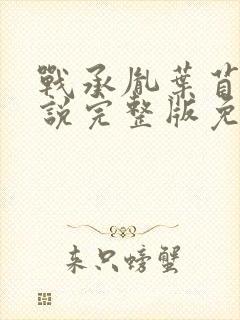 戰承胤葉
說完整版免
来只螃蟹